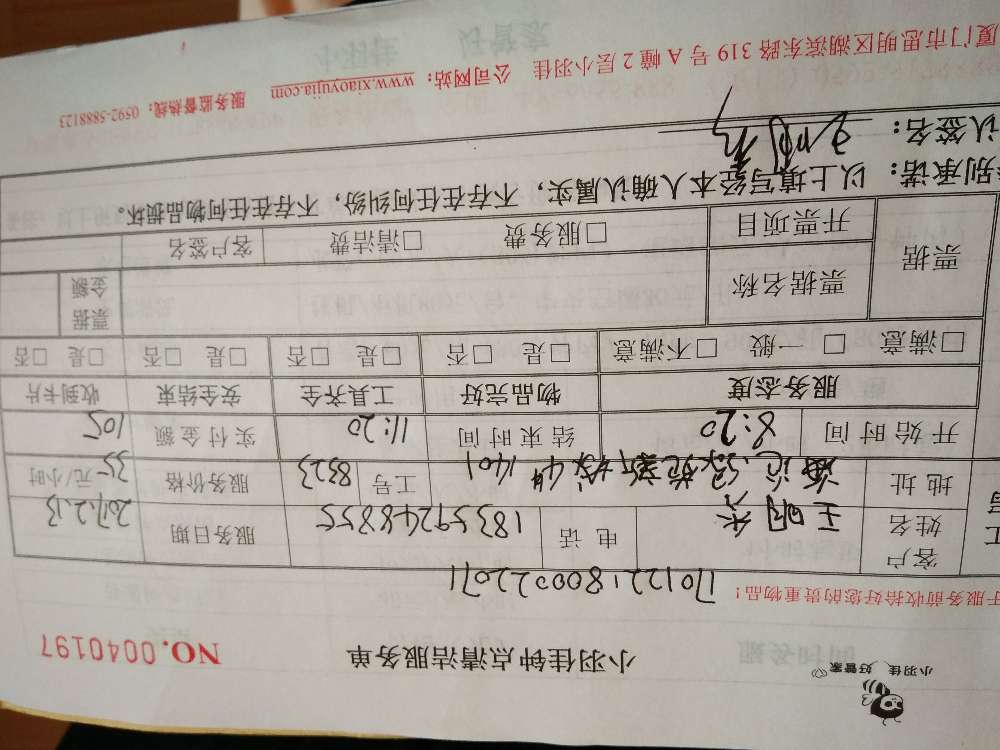 小羽佳 好管家
小羽佳钟点清洁服务单 NO.0040197
于服务前收拾好您的贵重物品！ 170122180002207 11
客户姓名 王明 电话 18359248855 服务日期 2017.2.13
地址 401 工号 8323 服务价格 35 元/小时
开始时间 8:20 结束时间 11:20 实付金额 105
服务态度 物品完好 工具齐全 安全结束 收到卡片
□满意 □一般 □不满意 □是 □否 □是 □否 □是 □否 □是 □否
票据 票据名称 票据金额
开票项目 □服务费 □清洁费 客户签名
别承诺：以上填写经本人确认属实，不存在任何纠纷，不存在任何物品损坏。
认签名：
厦门市思明区湖滨东路 319 号 A 幢 2 层小羽佳 公司网站：www.xiaoyujia.com 服务监督热线：0592-5888123